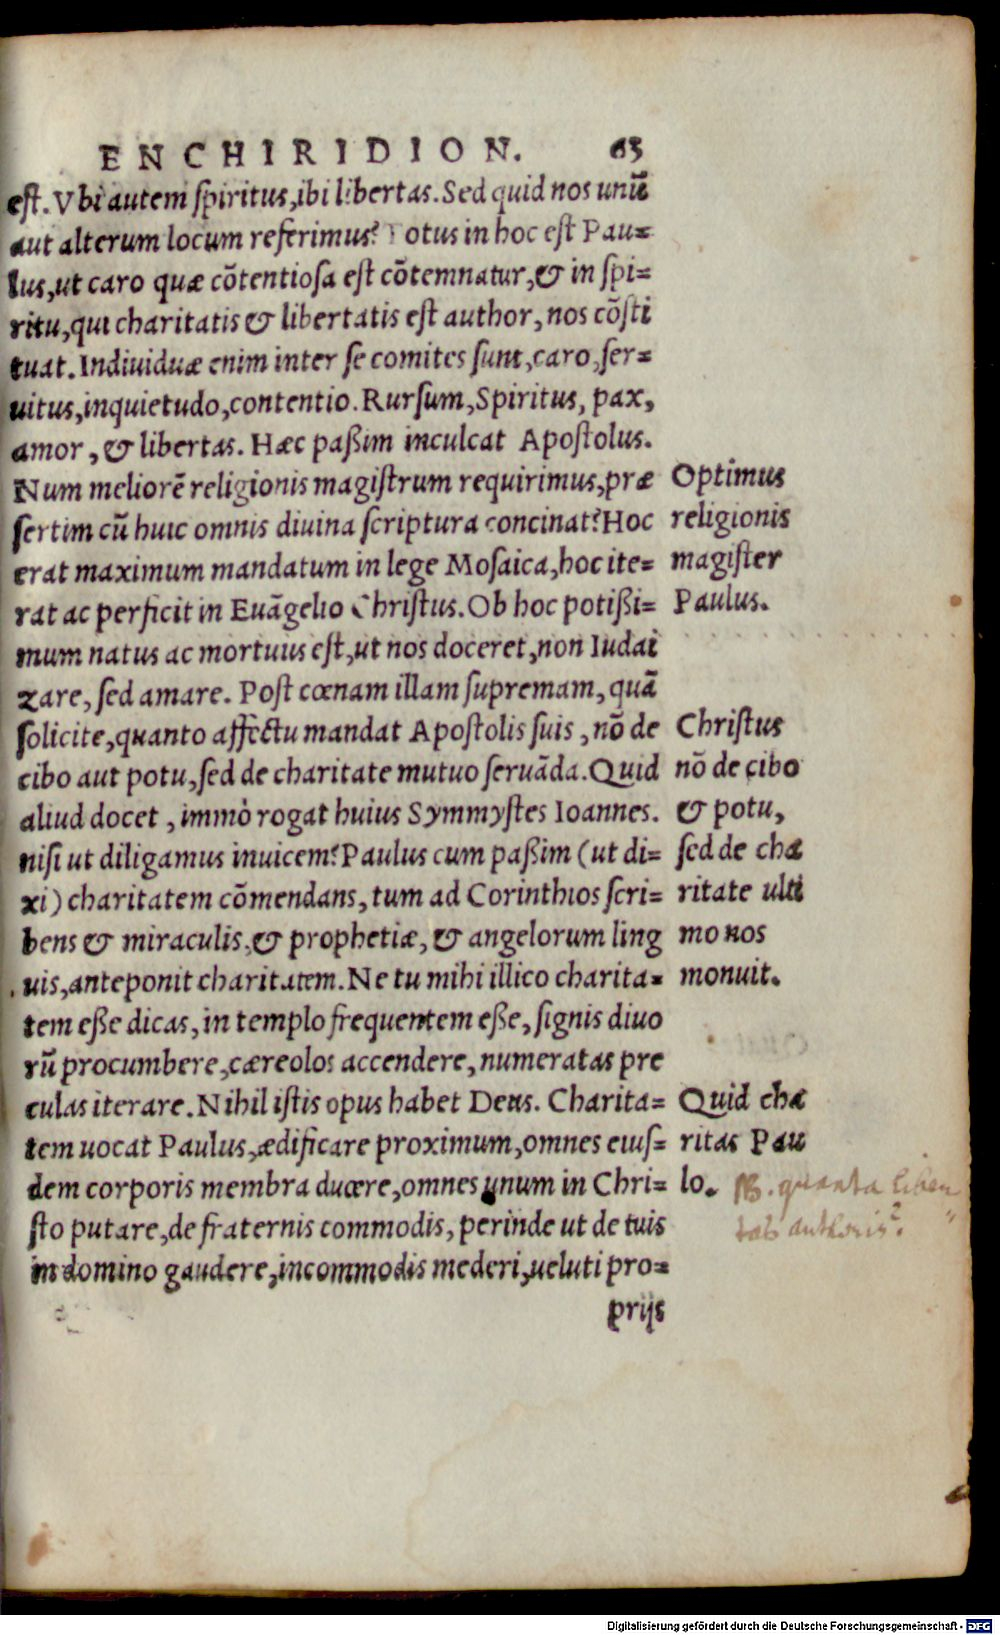 ENCHIRIDION. 63
est. Vbi autem spiritus, ibi libertas. Sed quid nos unũ
aut alterum locum referimus? Totus in hoc est Pau=
lus, ut caro quæ cõtentiosa est cõtemnatur, & in spi=
ritu, qui charitatis & libertatis est author, nos cõsti
tuat. Indiuiduæ enim inter se comites sunt, caro, ser=
uitus, inquietudo, contentio. Rursum, Spiritus, pax,
amor, & libertas. Hæc paßim inculcat Apostolus.
Num meliorẽ religionis magistrum requirimus, præ
sertim cũ huic omnis diuina scriptura concinat? Hoc
erat maximum mandatum in lege Mosaica, hoc ite=
rat ac perficit in Euãgelio Christus. Ob hoc potißi=
mum natus ac mortuus est, ut nos doceret, non Iudai
zare, sed amare. Post cœnam illam supremam, quã
solicite, quanto affectu mandat Apostolis suis, nõ de
cibo aut potu, sed de charitate mutuo seruãda. Quid
aliud docet, immò rogat huius Symmystes Ioannes.
nisi ut diligamus inuicem? Paulus cum paßim (ut di=
xi) charitatem cõmendans, tum ad Corinthios scri=
bens & miraculis, & prophetiæ, & angelorum ling
uis, anteponit charitatem. Ne tu mihi illico charita=
tem eße dicas, in templo frequentem eße, signis diuo
rũ procumbere, cæreolos accendere, numeratas pre
culas iterare. Nihil istis opus habet Deus. Charita=
tem uocat Paulus, ædificare proximum, omnes eius=
dem corporis membra ducere, omnes unum in Chri=
sto putare, de fraternis commodis, perinde ut de tuis
in domino gaudere, incommodis mederi, ueluti pro=
prijs
Optimus
religionis
magister
Paulus.
Christus
nõ de cibo
& potu,
sed de cha
ritate ulti
mo nos
monuit.
Quid cha
ritas Pau
lo.
NB. quanta liber
tas authoris?
Digitalisierung gefördert durch die Deutsche Forschungsgemeinschaft - DFG